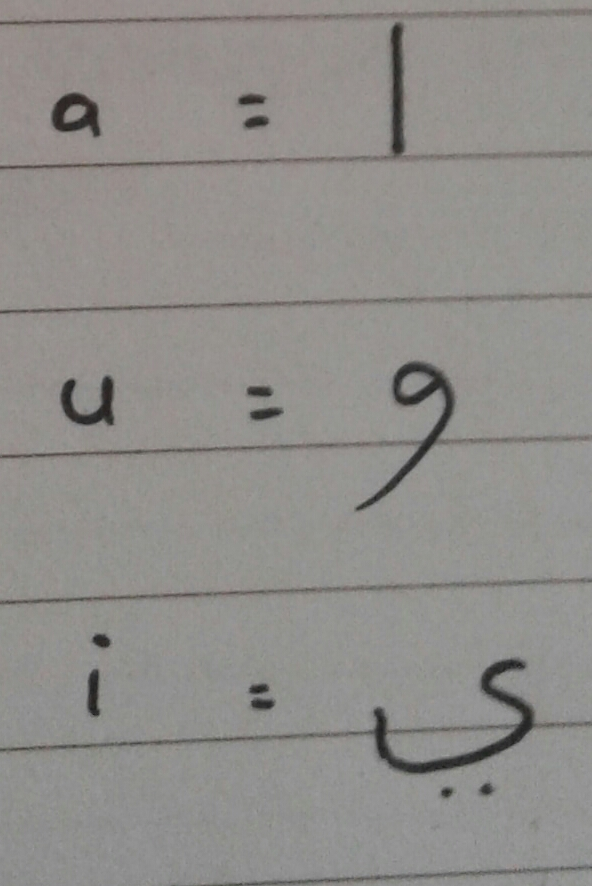 a = ا
u = و
i = ي